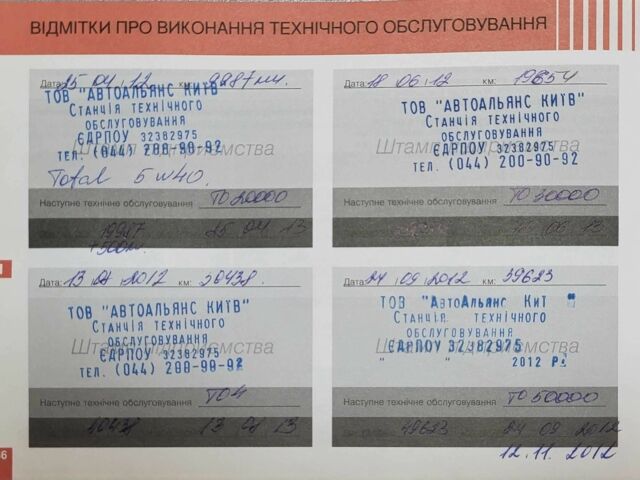 ВІДМІТКИ ПРО ВИКОНАННЯ ТЕХНІЧНОГО ОБСЛУГОВУВАННЯ
Дата: 25 04 12 км: 9987 км.
ТОВ "АВТОАЛЬЯНС КИЇВ"
СТАНЦІЯ ТЕХНІЧНОГО
ОБСЛУГОВУВАННЯ
ЄДРПОУ 32382975
ТЕЛ. (044) 200-90-92
Штамп підприємства
Total 5w40.
Наступне технічне обслуговування ТО 20000
25 04 13
Дата: 18 06 12 км: 19654
ТОВ "АВТОАЛЬЯНС КИЇВ"
СТАНЦІЯ ТЕХНІЧНОГО
ОБСЛУГОВУВАННЯ
ЄДРПОУ 32382975
ТЕЛ. (044) 200-90-92
Штамп підприємства
Наступне технічне обслуговування ТО 30000
06 13
Дата: 13 2012 км:
ТОВ "АВТОАЛЬЯНС КИЇВ"
СТАНЦІЯ ТЕХНІЧНОГО
ОБСЛУГОВУВАННЯ
ЄДРПОУ 32382975
ТЕЛ. (044) 200-90-92
Штамп підприємства
Наступне технічне обслуговування ТО4
13 13
Дата: 24 09 2012 км: 39623
ТОВ "АвтоАльянс Киї "
СТАНЦІЯ ТЕХНІЧНОГО
ОБСЛУГОВУВАННЯ
ЄДРПОУ 32382975
" " 2012 Р.
Штамп підприємства
Наступне технічне обслуговування ТО 50000
49623 24 09 2012
12.11.2012